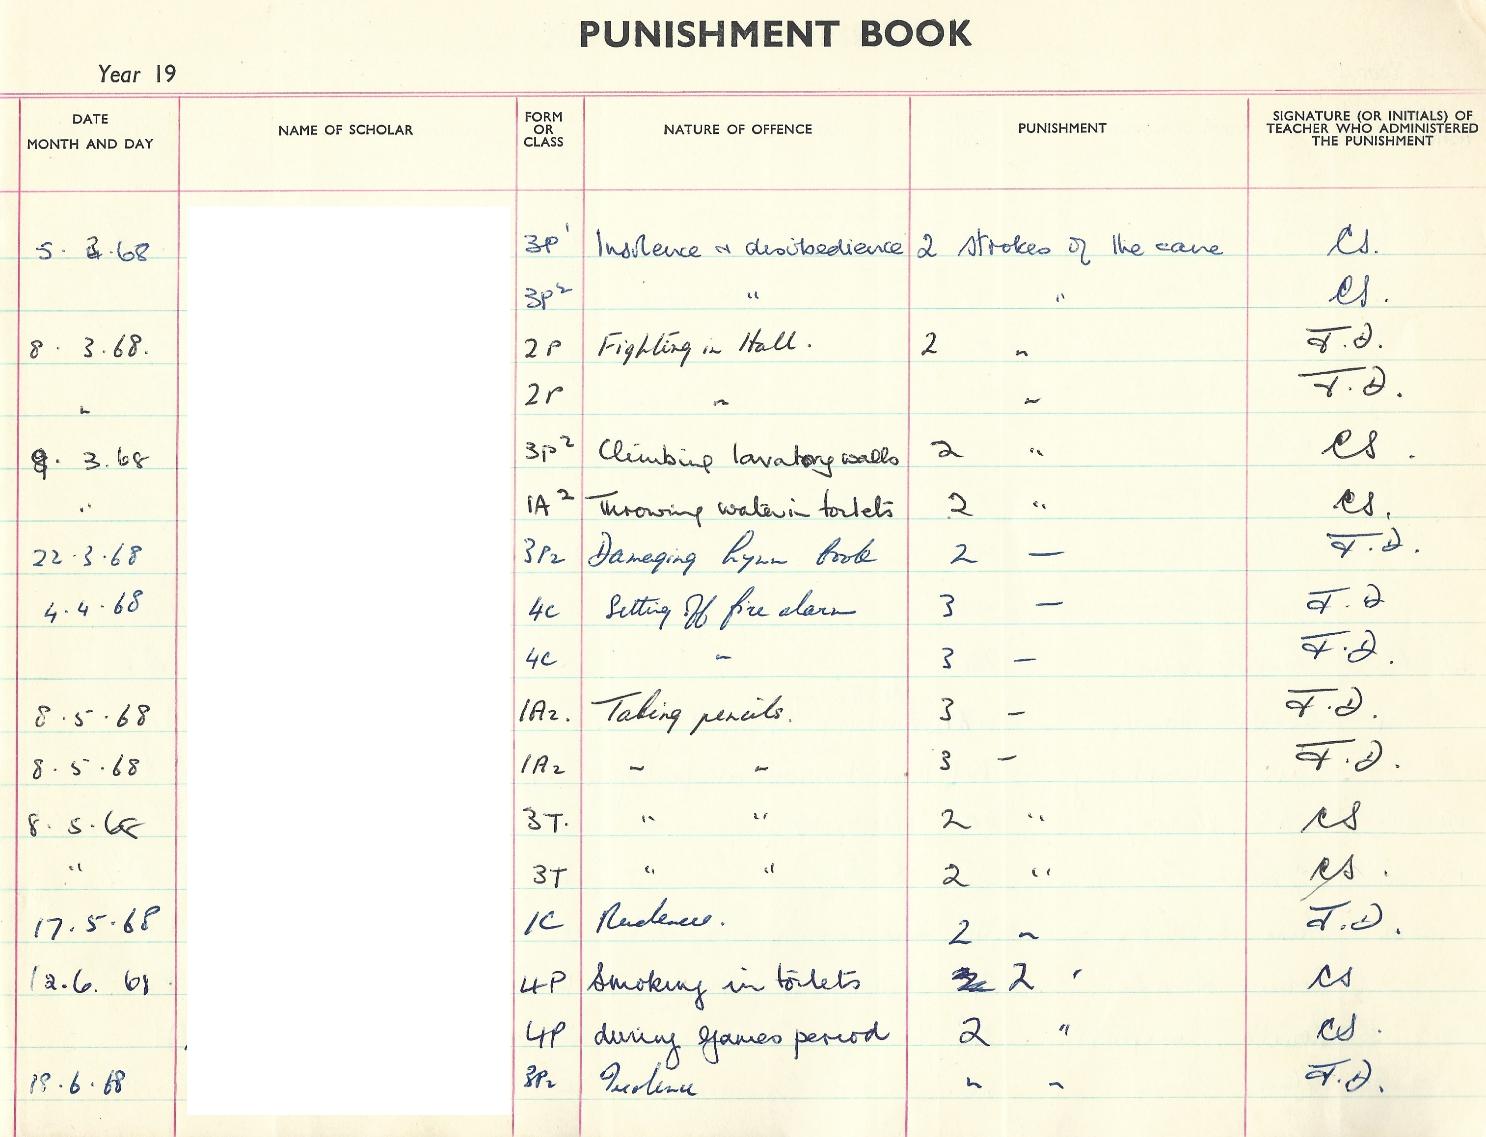 PUNISHMENT BOOK
Year 19
DATE MONTH AND DAY NAME OF SCHOLAR FORM OR CLASS NATURE OF OFFENCE PUNISHMENT SIGNATURE (OR INITIALS) OF TEACHER WHO ADMINISTERED THE PUNISHMENT
5. 3. 68 3P1 Insolence & disobedience 2 strokes of the cane CS.
3P2 " " CS.
8. 3. 68. 2P Fighting in Hall. 2 " F.D.
" 2P " " F.D.
9. 3. 68 3P2 Climbing lavatory walls 2 " CS.
" 1A2 Throwing water in toilets 2 " CS.
22.3.68 3P2 Damaging hymn book 2 — F.D.
4.4.68 4C Setting off fire alarm 3 — F.D
4C – 3 — F.D.
8.5.68 1A2. Taking pencils. 3 – F.D.
8.5.68 1A2 – – 3 – F.D.
8.5.68 3T. " " 2 " CS
" 3T " " 2 " CS.
17.5.68 1C Rudeness. 2 " F.D.
12.6. 68 4P Smoking in toilets 2 " CS
4P during games period 2 " CS.
19.6.68 3P2 Insolence " " F.D.